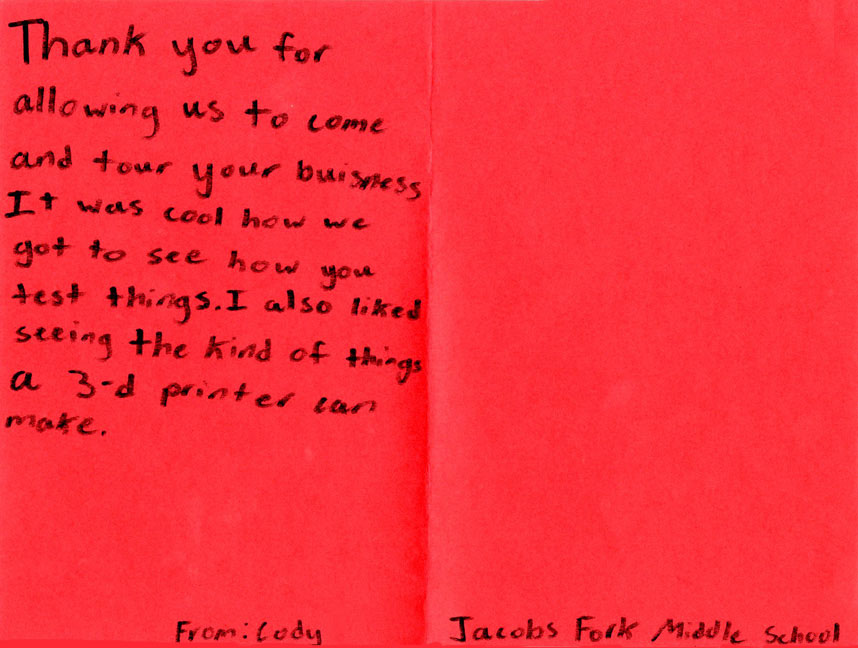 Thank you for
allowing us to come
and tour your buisness
It was cool how we
got to see how you
test things. I also liked
seeing the kind of things
a 3-d printer can
make.
From: Cody
Jacobs Fork Middle School